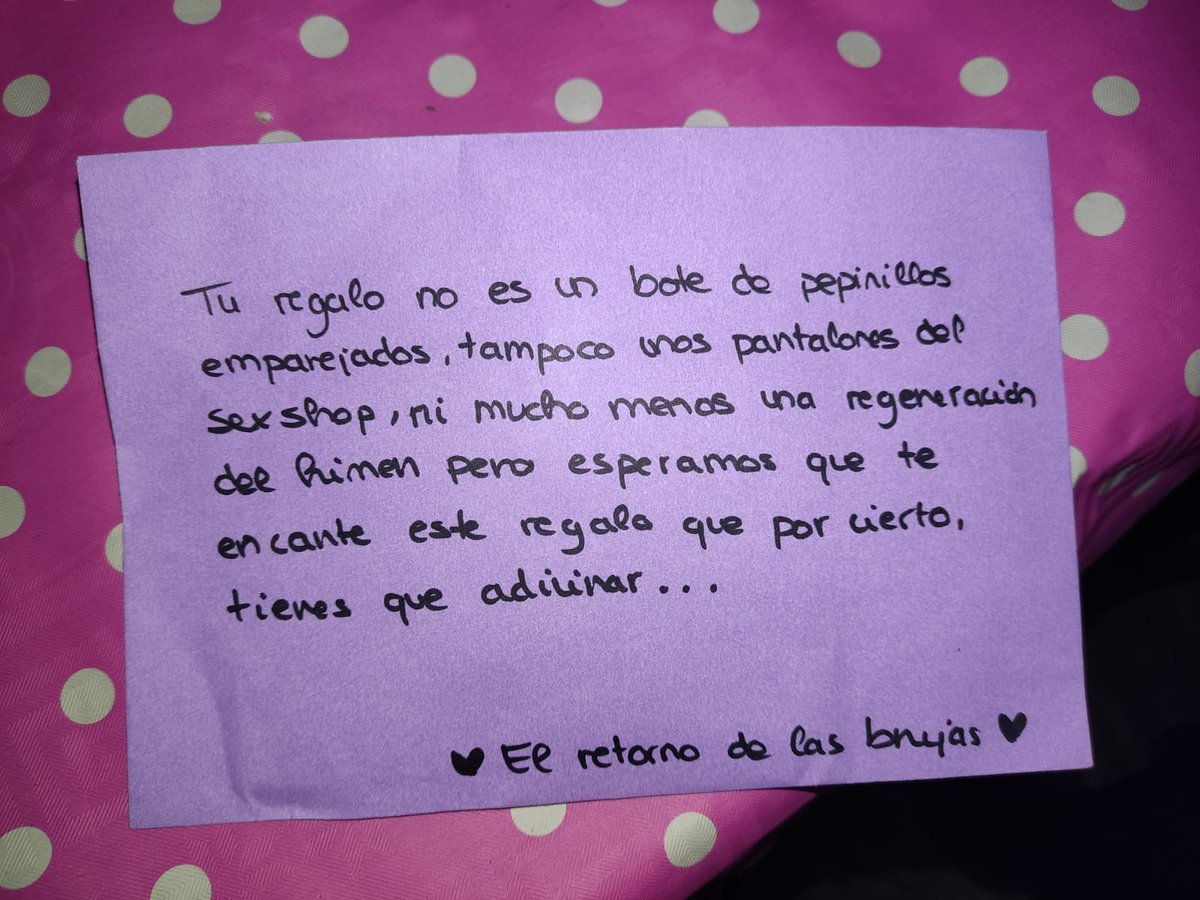 Tu regalo no es un bote de pepinillos
emparejados, tampoco unos pantalones del
sex shop, ni mucho menos una regeneración
del himen pero esperamos que te
encante este regalo que por cierto,
tienes que adivinar...
♥ El retorno de las brujas ♥